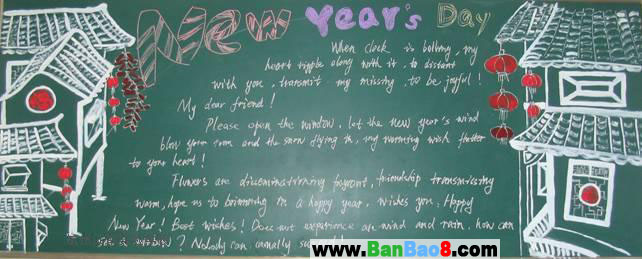 New Year's Day
When clock is bellring, my
heart ripple along with it, to distant
with you, transmit my missing, to be joyful!
My dear friend!
Please open the window, let the new year's wind
blow your room and the snow flying in, my warming wish flutter
to your heart!
Flowers are disseminationing fragrant, friendship transmissing
warm, hope us to brimming in a happy year, wishes you, Happy
New Year! Best wishes! Does not experience an wind and rain, how can
? Nobody can casually
www.BanBao8.com